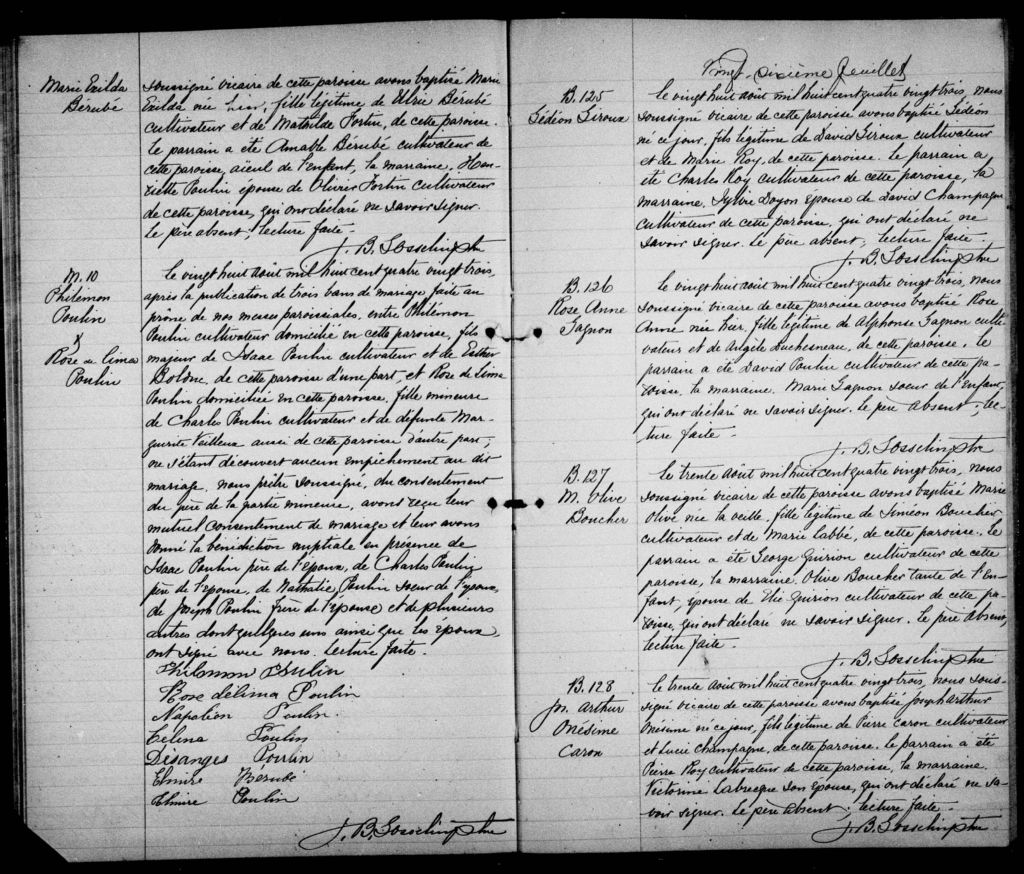 Marie Exilda
Bérubé
soussigné vicaire de cette paroisse avons baptisé Marie
Exilda née hier, fille légitime de Elzie Bérubé
cultivateur et de Mathilde Fortin, de cette paroisse.
Le parrain a été Amable Bérubé cultivateur de
cette paroisse, aïeul de l'enfant, la marraine, Hen-
riette Poulin épouse de Olivier Fortin cultivateur
de cette paroisse, qui ont déclaré ne savoir signer.
Le père absent; lecture faite.
J. B. Gosselin ptre
M. 10
Philémon
Poulin
&
Rose de Lima
Poulin
Le vingt huit août mil huit cent quatre vingt trois,
après la publication de trois bans de mariage faite au
prône de nos messes paroissiales, entre Philémon
Poulin cultivateur domicilié en cette paroisse, fils
majeur de Isaac Poulin cultivateur et de Esther
Bolduc, de cette paroisse d'une part, et Rose de Lima
Poulin domiciliée en cette paroisse, fille mineure
de Charles Poulin cultivateur et de défunte Mar-
guerite Veilleux aussi de cette paroisse d'autre part;
ne s'étant découvert aucun empêchement au dit
mariage, nous prêtre soussigné, du consentement
du père de la partie mineure, avons reçu leur
mutuel consentement de mariage et leur avons
donné la bénédiction nuptiale en présence de
Isaac Poulin père de l'époux, de Charles Poulin
père de l'épouse, de Nathalie Poulin soeur de l'époux,
de Joseph Poulin frère de l'épouse et de plusieurs
autres dont quelques uns ainsi que les époux,
ont signé avec nous. Lecture faite.
Philémon Poulin
Rose délima Poulin
Napoléon Poulin
Célina Poulin
Désanges Poulin
Elmire Bérubé
Elmire Poulin
J. B. Gosselin ptre
Vingt-sixième feuillet
B. 125
Gédéon Giroux
Le vingt huit août mil huit cent quatre vingt trois, nous
soussigné vicaire de cette paroisse avons baptisé Gédéon
né ce jour, fils légitime de David Giroux cultivateur
et de Marie Roy, de cette paroisse. Le parrain a
été Charles Roy cultivateur de cette paroisse, la
marraine, Sylvie Doyon épouse de David Champagne
cultivateur de cette paroisse, qui ont déclaré ne
savoir signer. Le père absent; lecture faite.
J. B. Gosselin ptre
B. 126
Rose Anne
Gagnon
Le vingt huit août mil huit cent quatre vingt trois, nous
soussigné vicaire de cette paroisse avons baptisé Rose
Anne née hier, fille légitime de Alphonse Gagnon culti-
vateur et de Angèle Duchesneau, de cette paroisse. Le
parrain a été David Poulin cultivateur de cette pa-
roisse, la marraine, Marie Gagnon soeur de l'enfant,
qui ont déclaré ne savoir signer. Le père absent; lec-
ture faite.
J. B. Gosselin ptre
B. 127
M. Olive
Boucher
Le trente août mil huit cent quatre vingt trois, nous
soussigné vicaire de cette paroisse avons baptisé Marie
Olive née la veille, fille légitime de Siméon Boucher
cultivateur et de Marie Labbé, de cette paroisse. Le
parrain a été George Quirion cultivateur de cette
paroisse, la marraine, Olive Boucher tante de l'en-
fant, épouse de Elie Quirion cultivateur de cette pa-
roisse, qui ont déclaré ne savoir signer. Le père absent,
lecture faite.
J. B. Gosselin ptre
B. 128
Jos. Arthur
Onésime
Caron
Le trente août mil huit cent quatre vingt trois, nous sous-
signé vicaire de cette paroisse avons baptisé Joseph Arthur
Onésime né ce jour, fils légitime de Pierre Caron cultivateur
et Lucie Champagne, de cette paroisse. Le parrain a été
Pierre Roy cultivateur de cette paroisse, la marraine,
Victorine Labrecque son épouse, qui ont déclaré ne sa-
voir signer. Le père absent; lecture faite.
J. B. Gosselin ptre